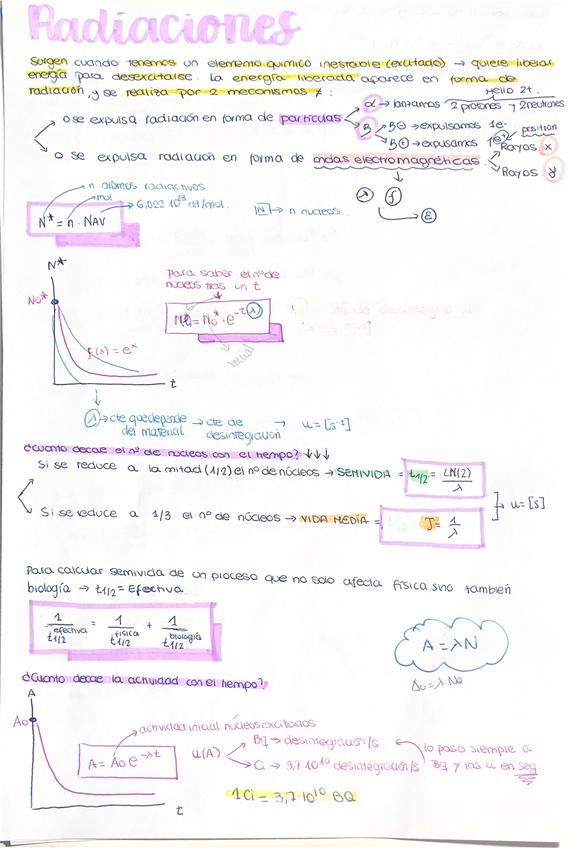 Radiaciones
Surgen cuando tenemos un elemento químico inestable (excitado) → quiere liberar
energía para desexcitarse. La energía liberada aparece en forma de
radiación, y se realiza por 2 mecanismos ≠:
Helio 2+.
α → lanzamos 2 protones y 2 neutrones
o se expulsa radiación en forma de partículas
B B⊖ → expulsamos 1e-
B⊕ → expusamos 1e+ positron
o se expulsa radiación en forma de ondas electromagnéticas.
Rayos x
Rayos γ
λ f
E
n átomos radiactivos
mol
6.022 10²³ at/mol.
N* = n · NAV
N → n nucleos.
N*
No*
Para saber el nº de
nucleos tras un t
N* = No* · e^-t λ
inicial
f(x) = e^x
t
λ → cte que depende → cte de → u = [s⁻¹]
del material desintegración
¿Cuanto decae el nº de nucleos con el tiempo? ↓↓↓
Si se reduce a la mitad (1/2) el nº de núcleos → SEMIVIDA = t1/2 = LN(2)/λ
→ u = [s]
Si se reduce a 1/3 el nº de núcleos → VIDA MEDIA = T = 1/λ
Para calcular semivida de un proceso que no solo afecta física sino también
biología → t1/2 = Efectiva.
1/t1/2 efectiva = 1/t1/2 física + 1/t1/2 biología
A = λN
Ao = λ No
¿Cuanto decae la actividad con el tiempo?
A
Ao
actividad inicial núcleos excitados
A = Ao e^-λt
u(A)
Bq → desintegración/s
Ci → 3,7·10¹⁰ desintegración/s
lo paso siempre a
Bq y las u en seg.
t
1Ci = 3,7·10¹⁰ BQ